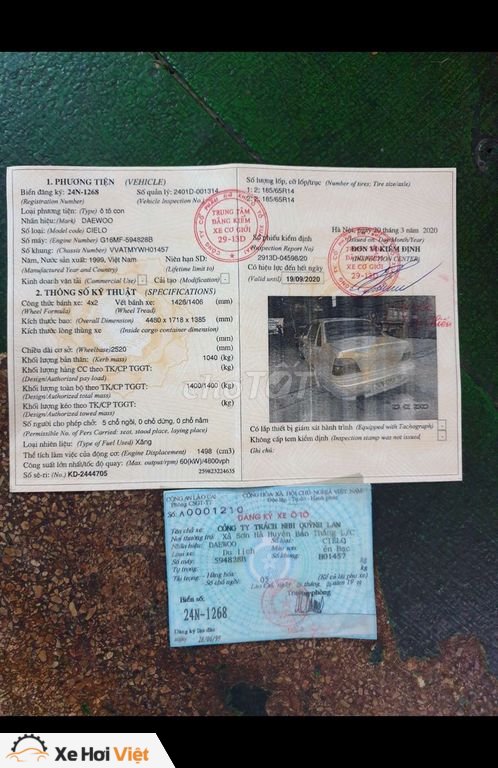 1. PHƯƠNG TIỆN (VEHICLE)
Biển đăng ký: 24N-1268 Số quản lý: 2401D-001314
(Registration Number) (Vehicle Inspection No.)
Loại phương tiện: (Type) ô tô con
Nhãn hiệu: (Mark) DAEWOO
Số loại: (Model code) CIELO
Số máy: (Engine Number) G16MF-594828B
Số khung: (Chassis Number) VVATMYWH01457
Năm, Nước sản xuất: 1999, Việt Nam Niên hạn SD:
(Manufactured Year and Country) (Lifetime limit to)
Kinh doanh vận tải (Commercial Use) - Cải tạo (Modification) -
2. THÔNG SỐ KỸ THUẬT (SPECIFICATIONS)
Công thức bánh xe: 4x2 Vết bánh xe: 1426/1406 (mm)
(Wheel Formula) (Wheel Tread)
Kích thước bao: (Overall Dimension) 4480 x 1718 x 1385 (mm)
Kích thước lòng thùng xe (mm)
(Inside cargo container dimension)
Chiều dài cơ sở: (Wheelbase) 2520 (mm)
Khối lượng bản thân: (Kerb mass) 1040 (kg)
Khối lượng hàng CC theo TK/CP TGGT: (kg)
(Design/Authorized pay load)
Khối lượng toàn bộ theo TK/CP TGGT: 1400/1400 (kg)
(Design/Authorized total mass)
Khối lượng kéo theo TK/CP TGGT: (kg)
(Design/Authorized towed mass)
Số người cho phép chở: 5 chỗ ngồi, 0 chỗ đứng, 0 chỗ nằm
(Permissible No. of Pers Carried: seat, stood place, laying place)
Loại nhiên liệu: (Type of Fuel Used) Xăng
Thể tích làm việc của động cơ: (Engine Displacement) 1498 (cm³)
Công suất lớn nhất/tốc độ quay: (Max. output/rpm) 60(kW)/4800vph
Số sê-ri: (No.) KD-2444705 259823224635
Số lượng lốp, cỡ lốp/trục (Number of tires; Tire size/axle)
1: 2; 185/65R14
2: 2; 185/65R14
TRUNG TÂM
ĐĂNG KIỂM
XE CƠ GIỚI
29-13D
Số phiếu kiểm định
(Inspection Report No)
2913D-04598/20
Có hiệu lực đến hết ngày
(Valid until) 19/09/2020
Hà Nội, ngày 20 tháng 3 năm 2020
(Issued on: Day/Month/Year)
ĐƠN VỊ KIỂM ĐỊNH
(INSPECTION CENTER)
XE CƠ GIỚI
29-13D
chợTỐT
Có lắp thiết bị giám sát hành trình (Equipped with Tachograph) -
Không cấp tem kiểm định (Inspection stamp was not issued) -
Ghi chú:
CÔNG AN LÀO CAI
Phòng CSGT-TT
CỘNG HÒA XÃ HỘI CHỦ NGHĨA VIỆT NAM
Độc lập - Tự do - Hạnh phúc
Số: A0001210
ĐĂNG KÝ XE Ô TÔ
Tên chủ xe: CÔNG TY TRÁCH NHH QUỲNH LAN
Nơi thường trú: Xã Sơn Hà Huyện Bảo Thắng L/C
Nhãn hiệu: DAEWOO Số loại: CIELO
Du Lịch Màu sơn
Số máy: 594828B Số khung: H01457
Trưởng phòng
Biển số:
24N-1268
Đăng ký lần đầu
ngày
Xe Hơi Việt